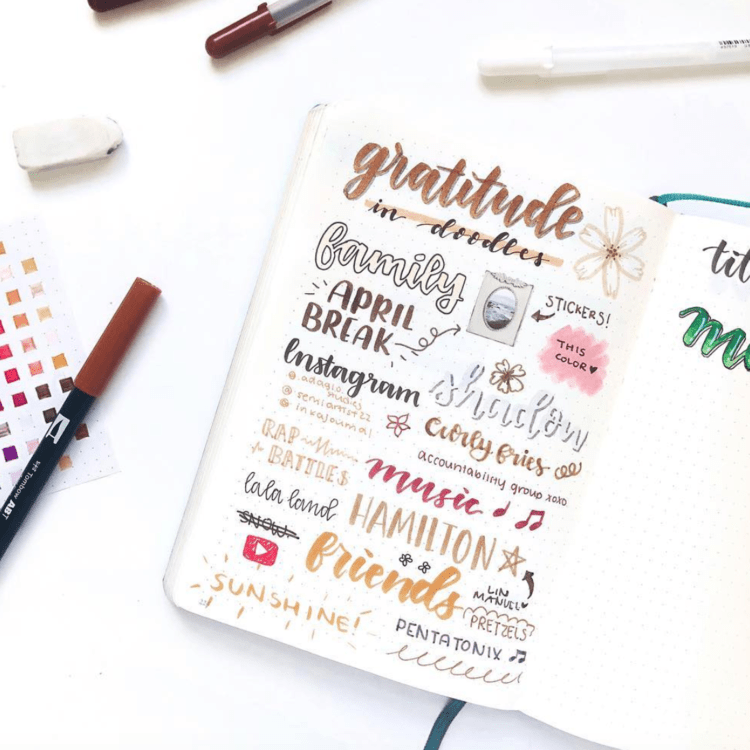 gratitude
in doodles
family
STICKERS!
APRIL
BREAK
THIS
COLOR
Instagram
shadow
@ adagio
studies
@ semiartist22
@ inkajournal
curly fries
accountability group xoxo
RAP
+ BATTLES
music
lala land
HAMILTON
SNOW
friends
LIN
MANUEL
PRETZELS
SUNSHINE!
PENTATONIX
Tombow ABT